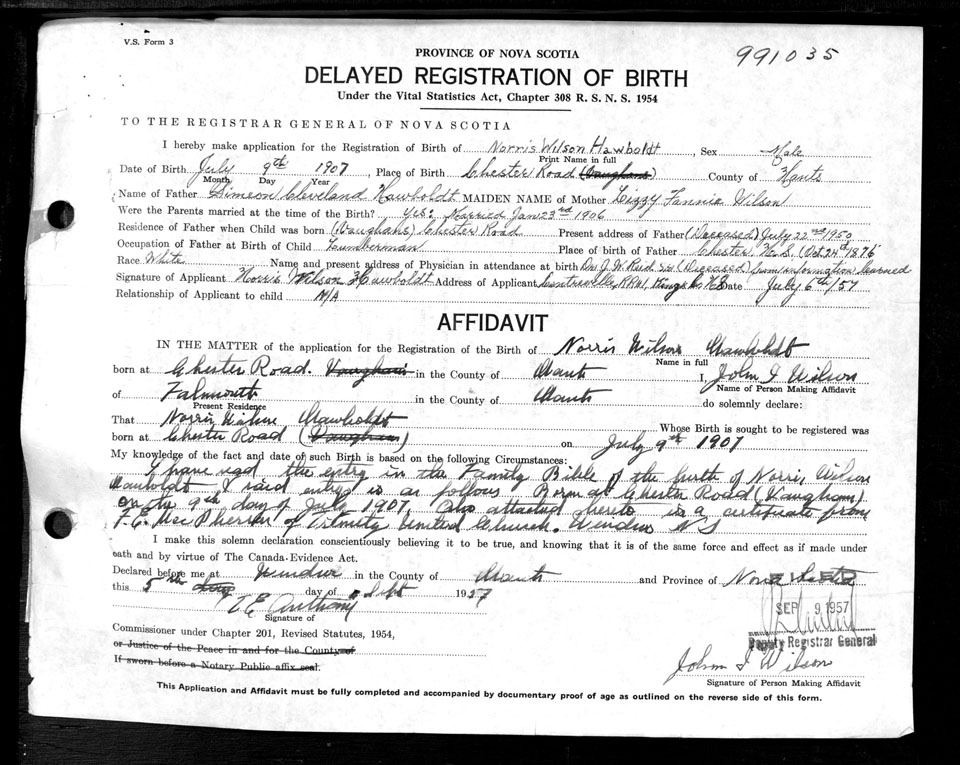 V.S. Form 3
991035
PROVINCE OF NOVA SCOTIA
DELAYED REGISTRATION OF BIRTH
Under the Vital Statistics Act, Chapter 308 R. S. N. S. 1954
TO THE REGISTRAR GENERAL OF NOVA SCOTIA
I hereby make application for the Registration of Birth of Norris Wilson Hawboldt, Sex Male
Print Name in full
Date of Birth July 9th 1907, Place of Birth Chester Road (Vaughans) County of Hants
Month Day Year
Name of Father Simeon Cleveland Hawboldt MAIDEN NAME of Mother Lizzy Fannie Wilson
Were the Parents married at the time of the Birth? Yes: Married Jan 23rd 1906
Residence of Father when Child was born (Vaughans) Chester Road Present address of Father (Deceased) July 22nd 1950
Occupation of Father at Birth of Child Lumberman Place of birth of Father Chester, N.S. (Oct 24th 1876
Race White Name and present address of Physician in attendance at birth Dr. J. W. Reid (Deceased) from information learned
Signature of Applicant Norris Wilson Hawboldt Address of Applicant Centreville, RR#1, Kings Co NS Date July 6th/57
Relationship of Applicant to child N/A
AFFIDAVIT
IN THE MATTER of the application for the Registration of the Birth of Norris Wilson Hawboldt
Name in full
born at Chester Road. Vaughan in the County of Hants I John I Wilson
Name of Person Making Affidavit
of Falmouth in the County of Hants do solemnly declare:
Present Residence
That Norris Wilson Hawboldt Whose Birth is sought to be registered was
born at Chester Road (Vaughan) on July 9th 1907
My knowledge of the fact and date of such Birth is based on the following Circumstances:
I have read the entry in the Family Bible of the birth of Norris Wilson
Hawboldt & said entry is as follows Born at Chester Road (Vaughans)
on the 9th day of July 1907. Also attached hereto is a certificate from
of Trinity United Church. Windsor N S
I make this solemn declaration conscientiously believing it to be true, and knowing that it is of the same force and effect as if made under
oath and by virtue of The Canada Evidence Act.
Declared before me at Windsor in the County of Hants and Province of Nova Scotia
this 5th day of Sept 1957
Anthony
Signature of
SEP 9 1957
Deputy Registrar General
Commissioner under Chapter 201, Revised Statutes, 1954,
or Justice of the Peace in and for the County of
If sworn before a Notary Public affix seal.
John I Wilson
Signature of Person Making Affidavit
This Application and Affidavit must be fully completed and accompanied by documentary proof of age as outlined on the reverse side of this form.